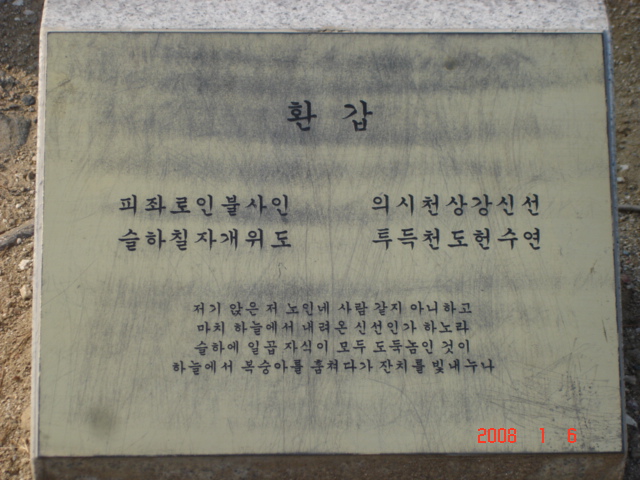 환 갑
피좌로인불사인 의시천상강신선
슬하칠자개위도 투득천도헌수연
저기 앉은 저 노인네 사람 같지 아니하고
마치 하늘에서 내려온 신선인가 하노라
슬하에 일곱 자식이 모두 도둑놈인 것이
하늘에서 복숭아를 훔쳐다가 잔치를 빛내누나
2008 1 6